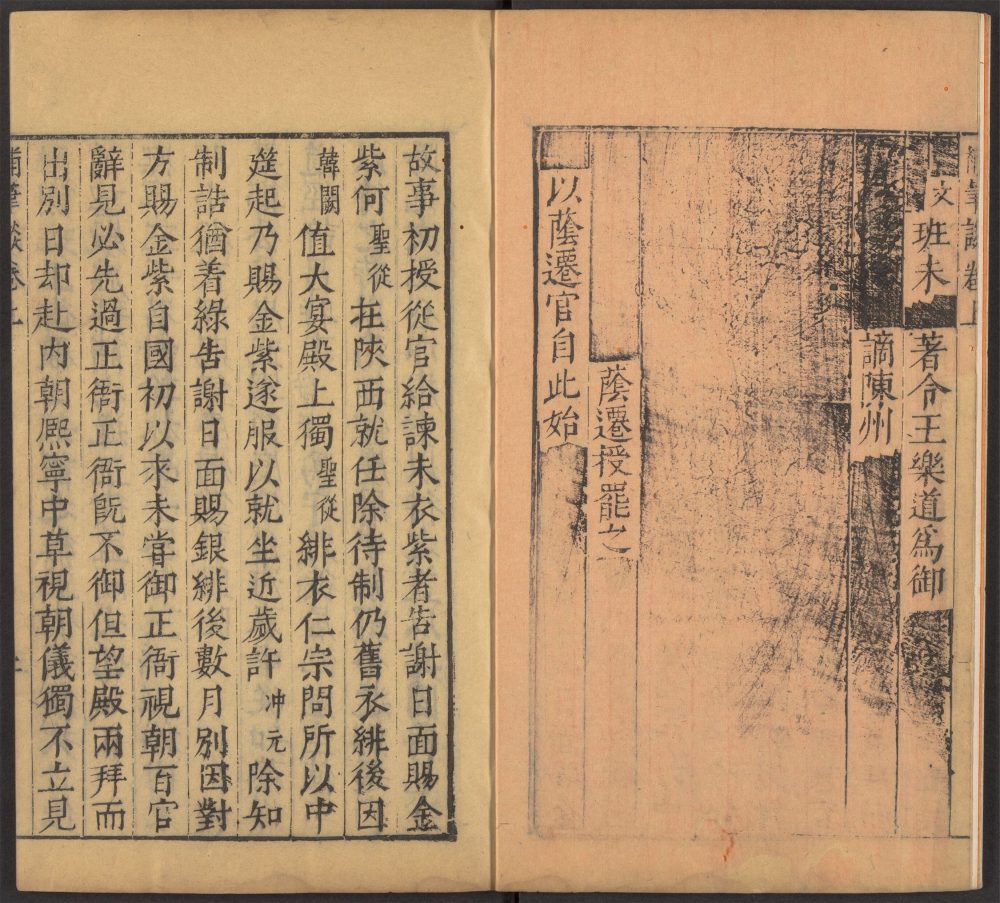 筆談卷上
文班未著令王樂道爲御
謫陳州
蔭遷授罷之
以蔭遷官自此始
故事初授從官給諫未衣紫者告謝日面賜金
紫何聖從在陝西就任除待制仍舊衣緋後因
韓闕值大宴殿上獨聖從緋衣仁宗問所以中
筵起乃賜金紫遂服以就坐近歲許冲元除知
制誥猶着綠告謝日面賜銀緋後數月別因對
方賜金紫自國初以來未嘗御正衙視朝百官
辭見必先過正衙正衙旣不御但望殿兩拜而
出別日却赴內朝熈寧中草視朝儀獨不立見